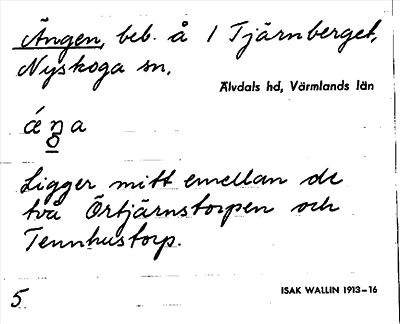 Ängen, beb. å 1 Tjärnberget,
Nyskoga sn.
Älvdals hd, Värmlands län
Ligger mitt emellan de
två Örtjärnstorpen och
Tennhustorp.
5.
ISAK WALLIN 1913–16